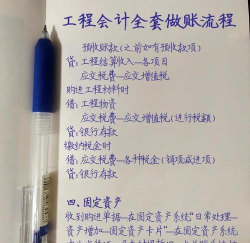 工程会计全套做账流程
预收账款(之前如有预收款项)
贷:工程结算收入—各项目
应交税费—应交增值税
购进工程材料时
借:工程物资
应交税费—应交增值税(进行税额)
贷:银行存款
缴纳税金时
借:应交税费—各种税金(销项减进项)
贷:银行存款
四、固定资产
收到购进单据—在固定资产系统"日常处理—
资产增加—固定资产卡片"—在固定资产系统